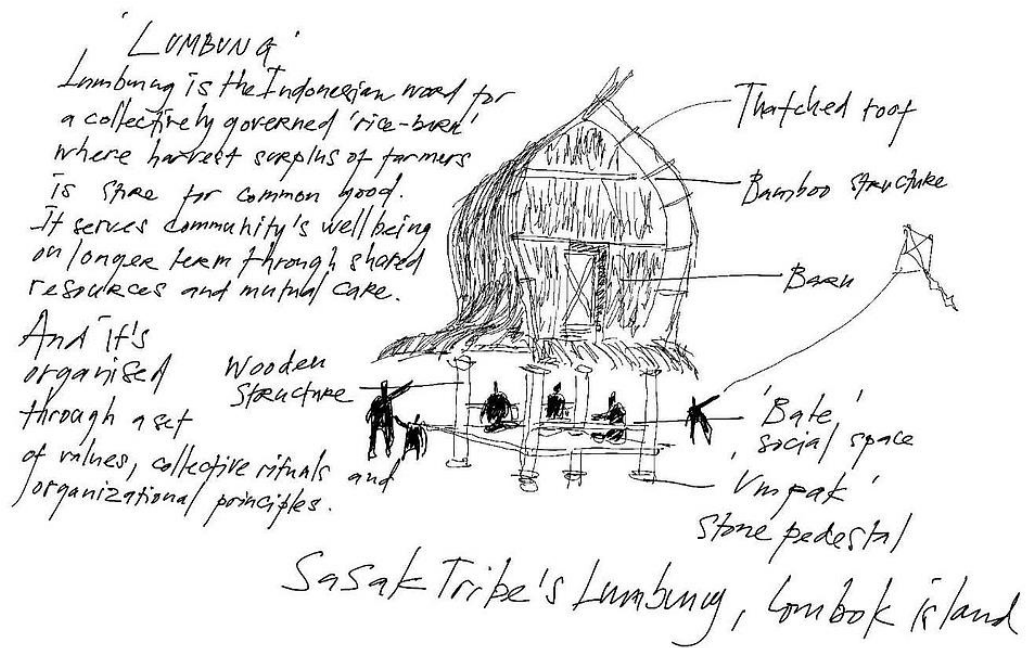 'LUMBUNG'
Lumbung is the Indonesian word for
a collectively governed 'rice-barn'
where harvest surplus of farmers
is store for common good.
It serves community's wellbeing
on longer term through shared
resources and mutual care.
And it's
organised
through a set
of values, collective rituals and
organizational principles.
Thatched roof
Bamboo structure
Barn
Wooden
structure
'Bale'
, social space
'Umpak'
stone pedestal
Sasak Tribe's Lumbung, Lombok island